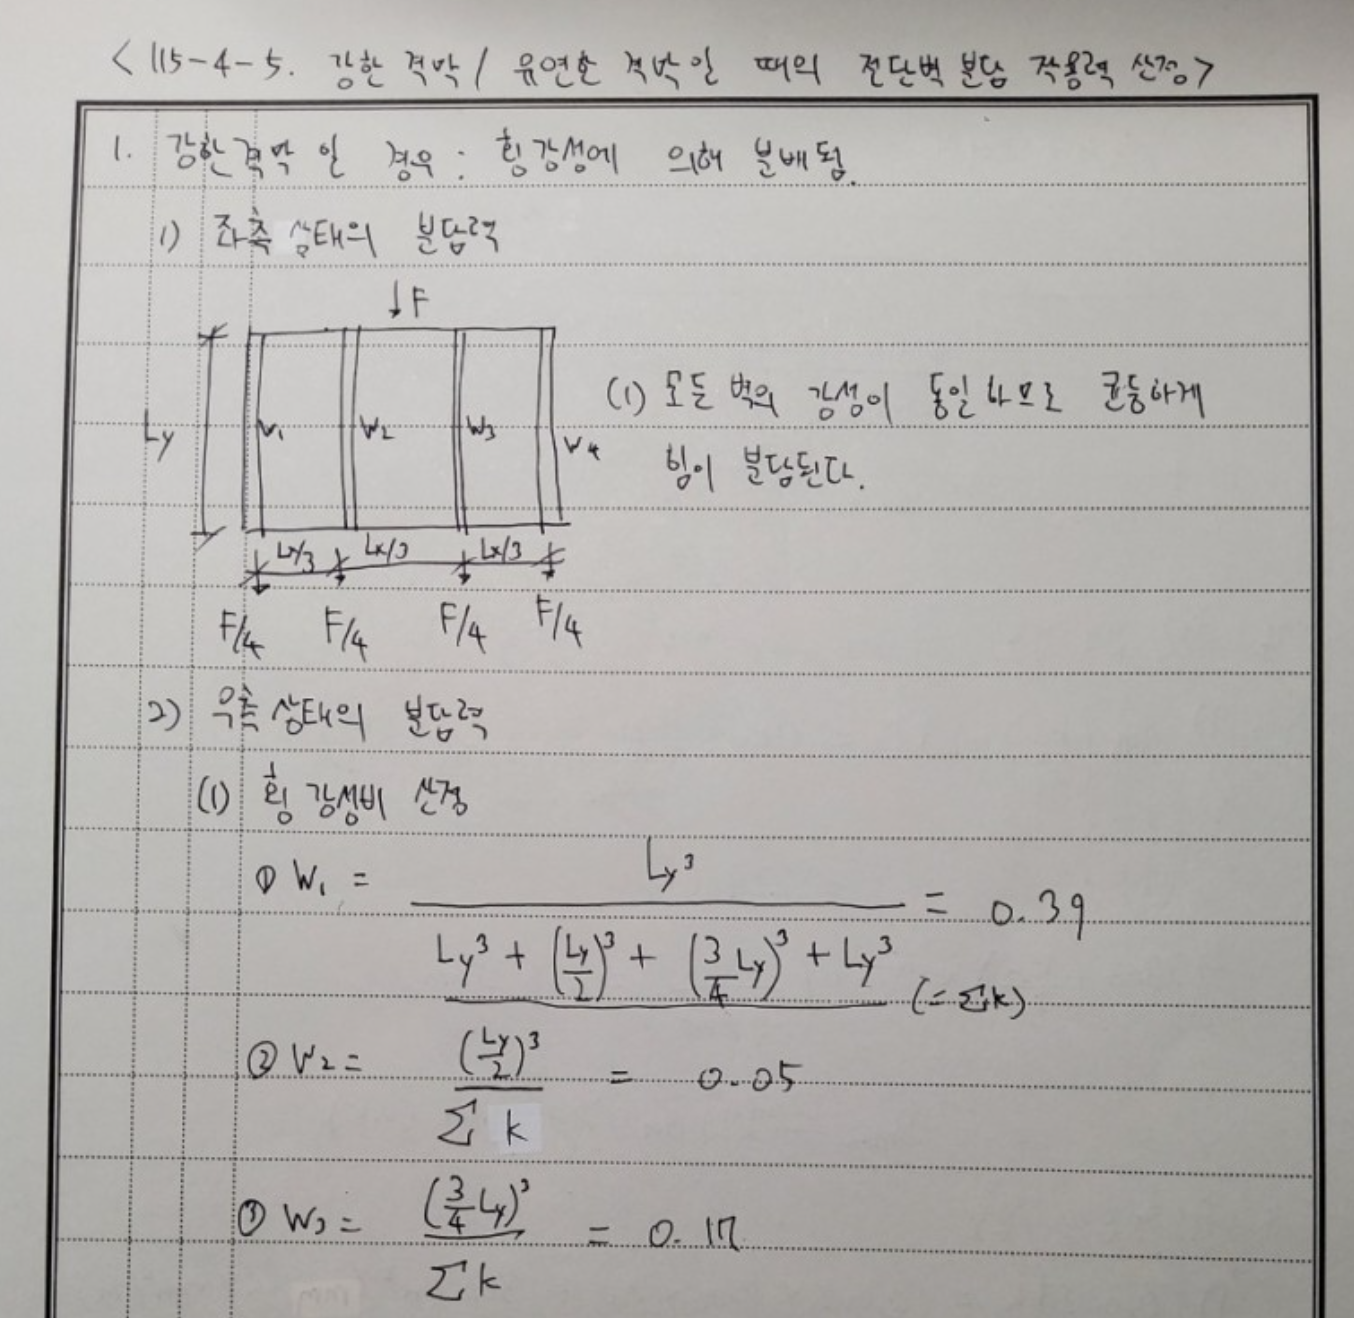 <115-4-5. 강한 격막 / 유연한 격막일 때의 전단벽 분담 작용력 산정>
1. 강한격막 일 경우 : 횡강성에 의해 분배됨.
1) 좌측 상태의 분담력
↓F
Ly
W1 W2 W3 W4
(1) 모든 벽의 강성이 동일하므로 균등하게
힘이 분담된다.
Lx/3 Lx/3 Lx/3
F/4 F/4 F/4 F/4
2) 우측 상태의 분담력
(1) 횡강성비 산정
① W1 = Ly³ / (Ly³ + (Ly/2)³ + (3/4 Ly)³ + Ly³) (=Σk) = 0.39
② W2 = (Ly/2)³ / Σk = 0.05
③ W3 = (3/4 Ly)³ / Σk = 0.17